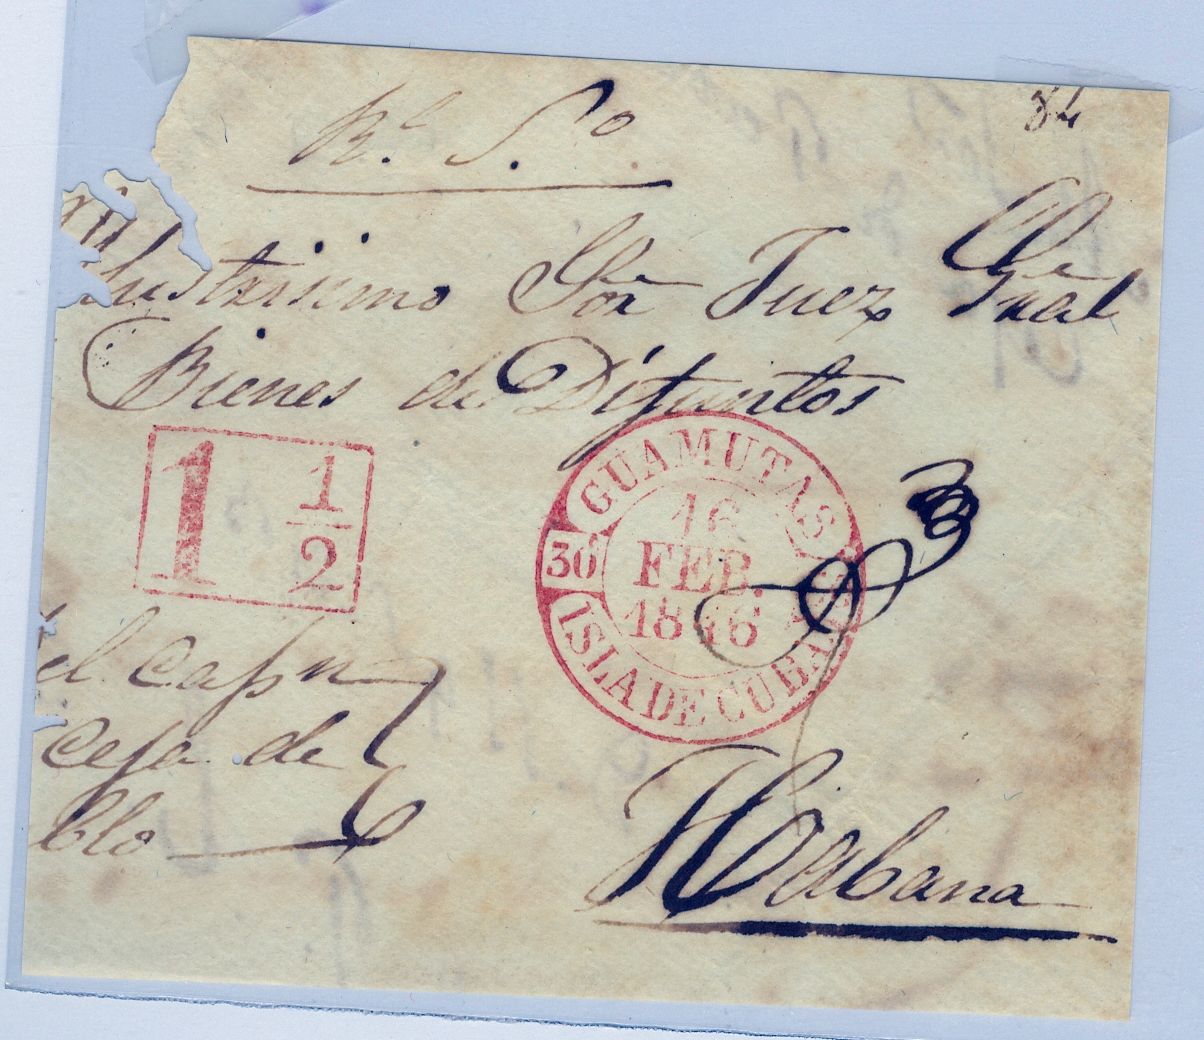 Rl. So.
84
Ilustrisimo Sor Juez Gral De
Bienes de Difuntos
1 1/2
GUAMUTAS
16
FEB.
1846
30
ISLA DE CUBA
el Capn
Ceja de
blo
Habana